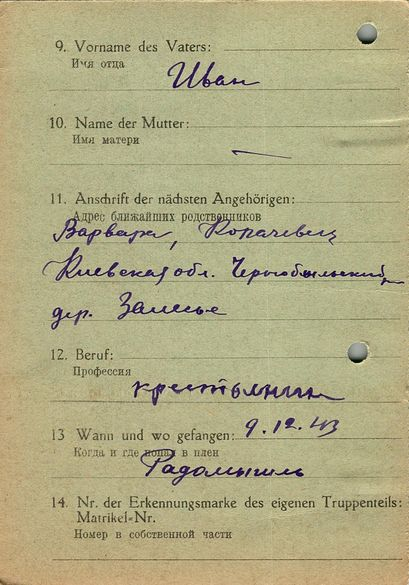 9. Vorname des Vaters:
Имя отца
Иван
10. Name der Mutter:
Имя матери
11. Anschrift der nächsten Angehörigen:
Адрес ближайших родственников
Варвара,
Киевская обл. Чернобыльский
дер. Залесье
12. Beruf:
Профессия
крестьянин
13 Wann und wo gefangen: 9.12.43
Когда и где попал в плен
Радомышль
14. Nr. der Erkennungsmarke des eigenen Truppenteils:
Matrikel-Nr.
Номер в собственной части